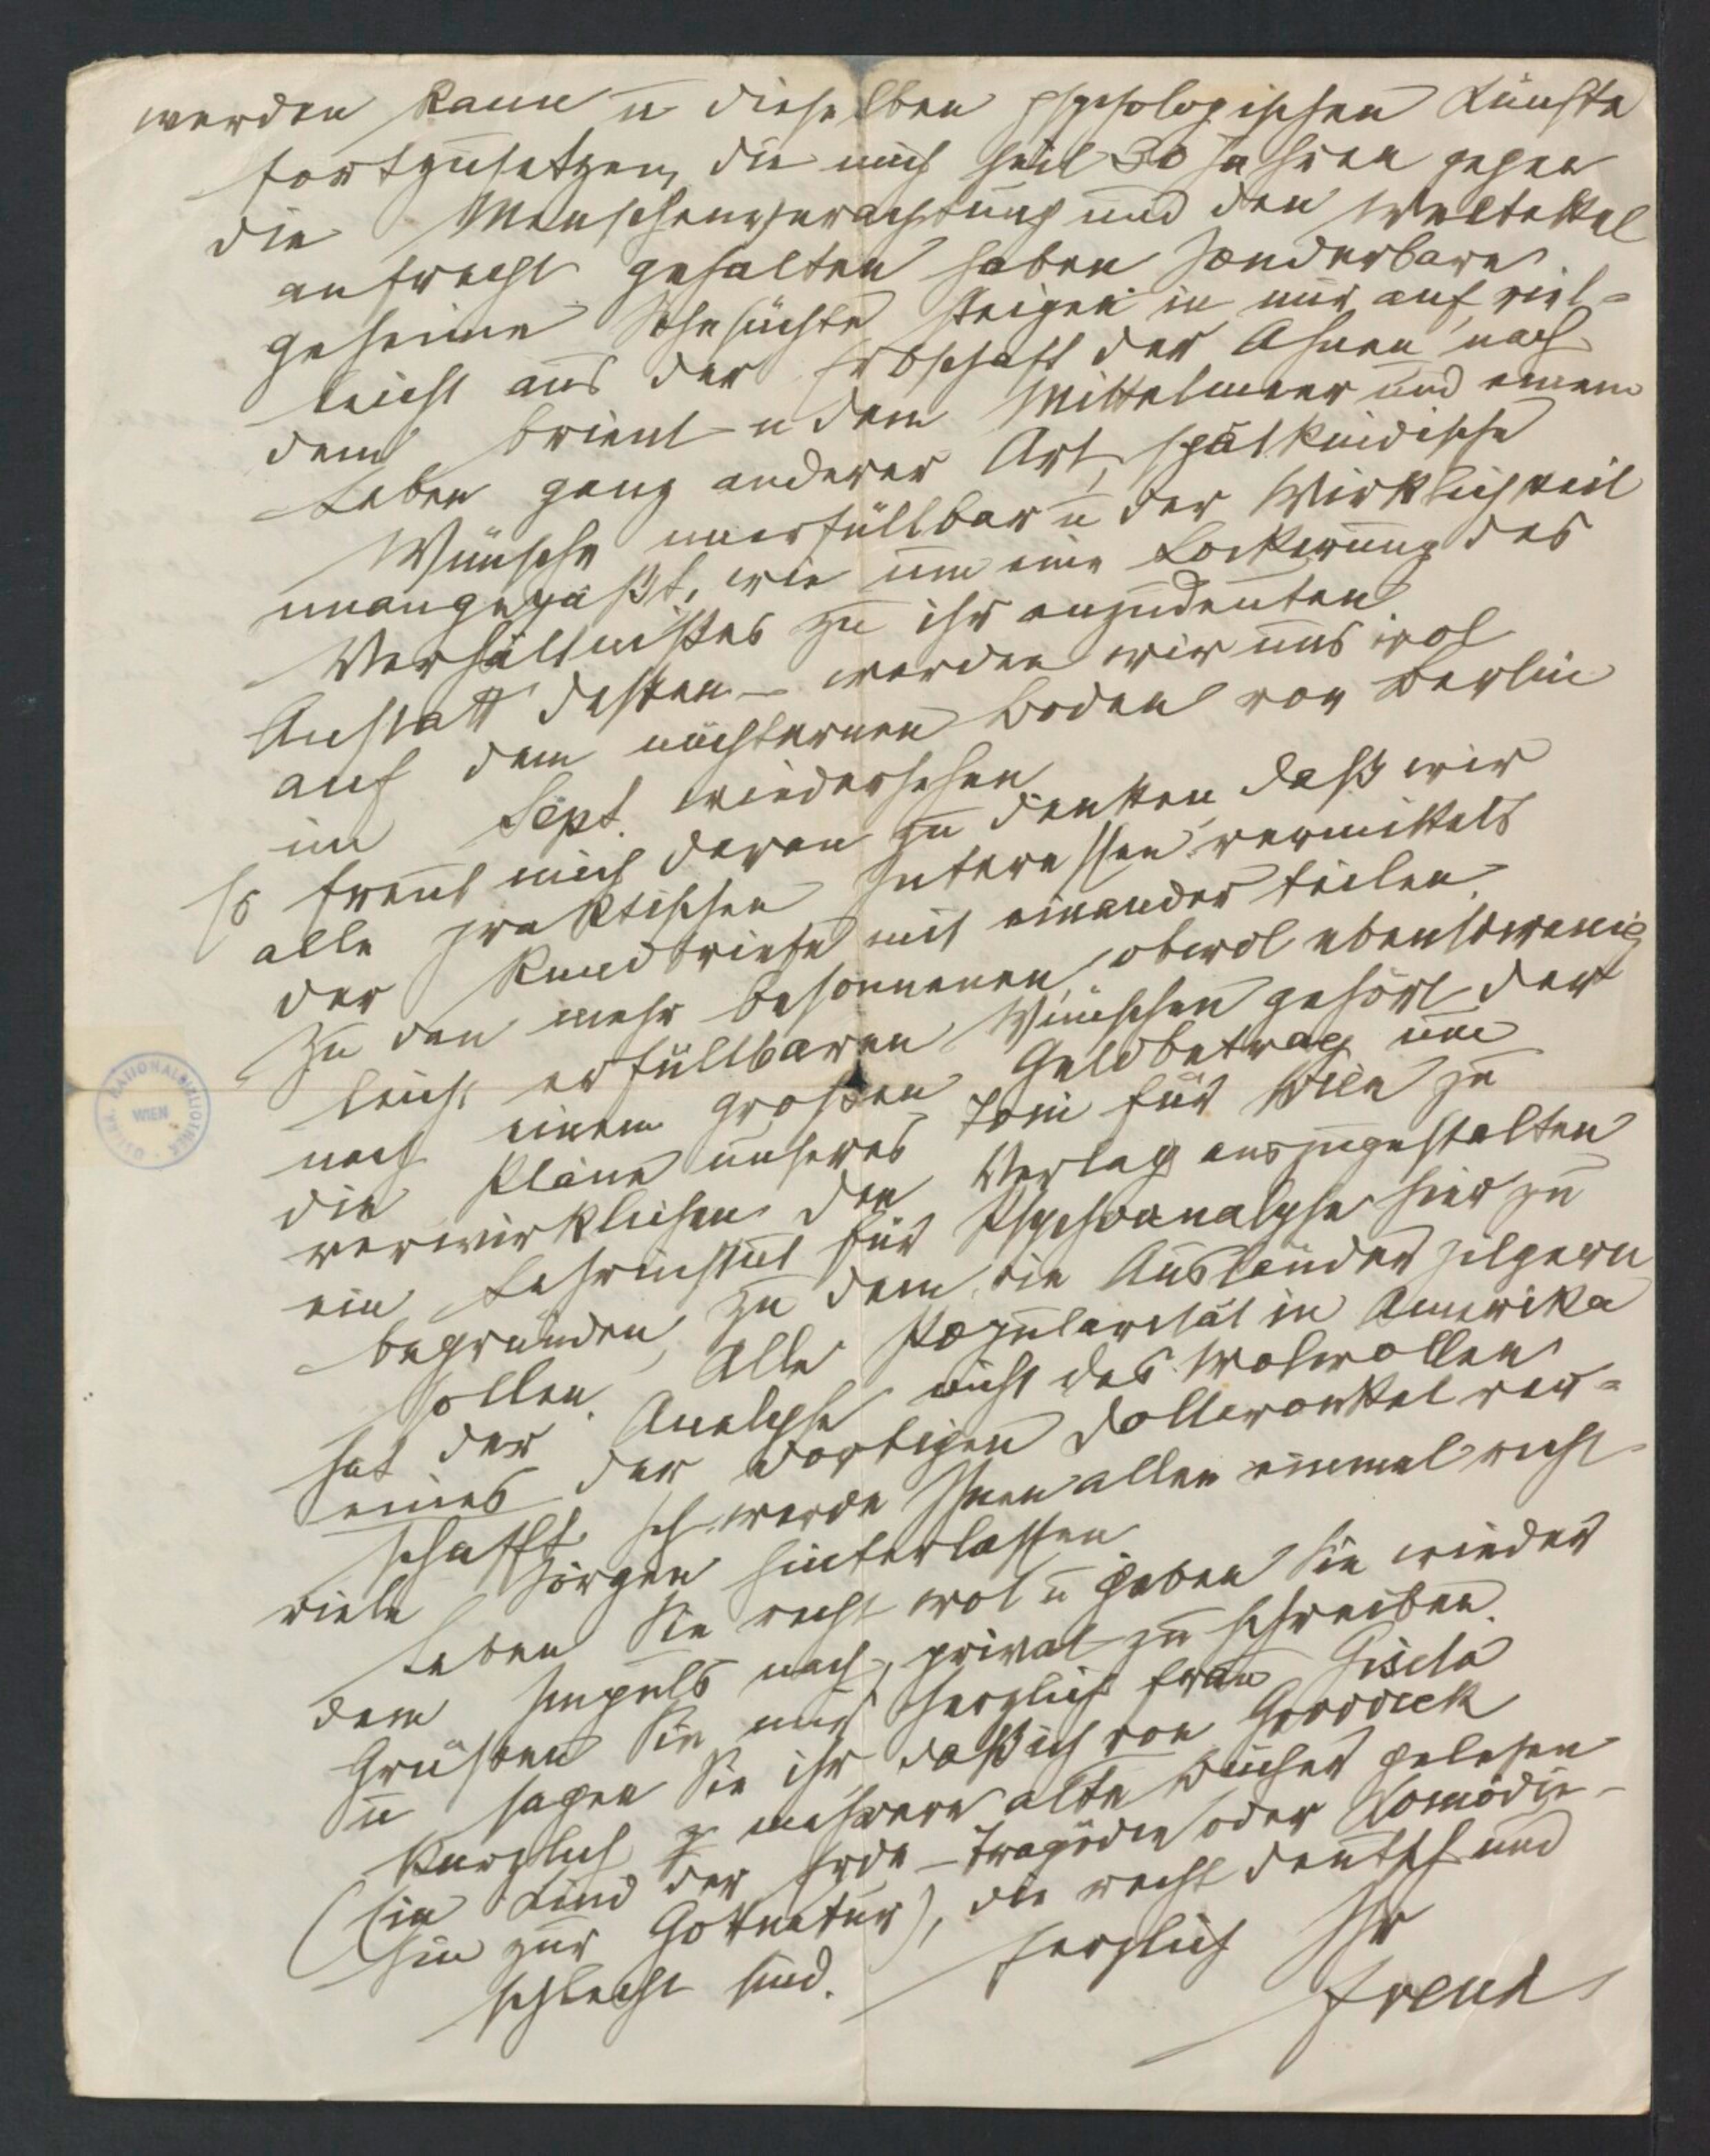 werden kann u dieselben psychologischen Künste
fortzusetzen, die mich seit 30 Jahren gegen
die Menschenverachtung und den Weltekel
aufrecht gehalten haben. Sonderbare
geheime Sehnsüchte steigen in mir auf, viel-
leicht aus der Erbschaft der Ahnen nach
dem Orient u dem Mittelmeer und einem
Leben ganz anderer Art, spätkindische
Wünsche unerfüllbar u der Wirklichkeit
unangepaßt, wie um eine Lockerung des
Verhältnißes zu ihr anzudeuten.
Anstatt dessen – werden wir uns wol
auf dem nüchternen Boden von Berlin
im Sept. wiedersehen.
Es freut mich daran zu denken, daß wir
alle praktischen Interessen vermittels
der Rundbriefe mit einander teilen.
Zu den mehr besonnenen, obwol ebensowenig
leicht erfüllbaren Wünschen gehört der
nach einem großen Geldbetrag um
die Pläne unseres Toni für Wien zu
verwirklichen den Verlag auszugestalten
ein Lehrinstitut für Psychoanalyse hier zu
begründen, zu dem die Ausländer pilgern
sollen. Alle Popularität in Amerika
hat der Analyse nicht das Wolwollen
eines der dortigen Dollaronkel ver-
schafft. Ich werde Ihnen allen einmal recht
viele Sorgen hinterlassen
Leben Sie recht wol u geben Sie wieder
dem Impuls nach, privat zu schreiben.
Grüßen Sie mir herzlich Frau Gisela
u sagen Sie ihr daß ich von Groddeck
kürzlich mehrere alte Bücher gelesen
(Ein Kind der Erde – Tragödie oder Komödie –
Hin zur Gottnatur), die recht deutsch und
schlecht sind. Herzlich Ihr
Freud
ÖSTERR. NATIONALBIBLIOTHEK
WIEN